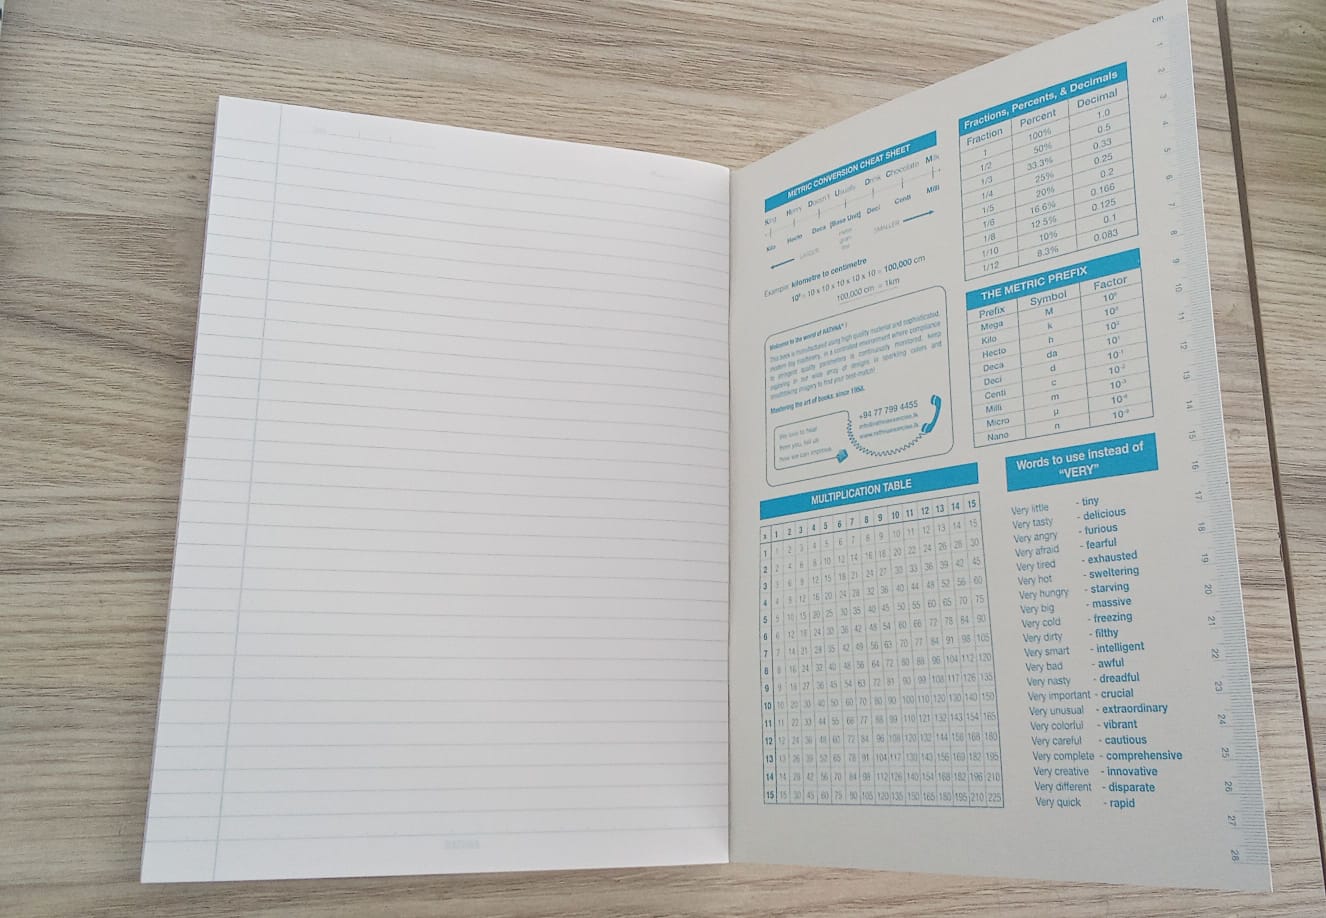 cm
1
2
3
4
5
6
7
8
9
10
11
12
13
14
15
16
17
18
19
20
21
22
23
24
25
26
27
28
METRIC CONVERSION CHEAT SHEET
King Henry Doesn't Usually Drink Chocolate Milk
Kilo Hecto Deca [Base Unit] Deci Centi Milli
LARGER SMALLER
Example: kilometre to centimetre
100,000 cm = 1km
Welcome to the world of RATHNA® !
This book is manufactured using high quality material and sophisticated,
modern day machinery, in a controlled environment where compliance
to stringent quality parameters is continuously monitored. Keep
exploring in our wide array of designs, in sparkling colors and
breathtaking imagery to find your best-match!
Mastering the art of books, since 1958.
We love to hear
from you, tell us
how we can improve.
+94 77 799 4455
www.rathnaexercise.lk
MULTIPLICATION TABLE
x 1 2 3 4 5 6 7 8 9 10 11 12 13 14 15
1 1 2 3 4 5 6 7 8 9 10 11 12 13 14 15
2 2 4 6 8 10 12 14 16 18 20 22 24 26 28 30
3 3 6 9 12 15 18 21 24 27 30 33 36 39 42 45
4 4 8 12 16 20 24 28 32 36 40 44 48 52 56 60
5 5 10 15 20 25 30 35 40 45 50 55 60 65 70 75
6 6 12 18 24 30 36 42 48 54 60 66 72 78 84 90
7 7 14 21 28 35 42 49 56 63 70 77 84 91 98 105
8 8 16 24 32 40 48 56 64 72 80 88 96 104 112 120
9 9 18 27 36 45 54 63 72 81 90 99 108 117 126 135
10 10 20 30 40 50 60 70 80 90 100 110 120 130 140 150
11 11 22 33 44 55 66 77 88 99 110 121 132 143 154 165
12 12 24 36 48 60 72 84 96 108 120 132 144 156 168 180
13 13 26 39 52 65 78 91 104 117 130 143 156 169 182 195
14 14 28 42 56 70 84 98 112 126 140 154 168 182 196 210
15 15 30 45 60 75 90 105 120 135 150 165 180 195 210 225
Fractions, Percents, & Decimals
Fraction Percent Decimal
1 100% 1.0
1/2 50% 0.5
1/3 33.3% 0.33
1/4 25% 0.25
1/5 20% 0.2
1/6 16.6% 0.166
1/8 12.5% 0.125
1/10 10% 0.1
1/12 8.3% 0.083
THE METRIC PREFIX
Prefix Symbol Factor
Mega M 10⁶
Kilo k 10³
Hecto h 10²
Deca da 10¹
Deci d 10⁻¹
Centi c 10⁻²
Milli m 10⁻³
Micro µ 10⁻⁶
Nano n 10⁻⁹
Words to use instead of
"VERY"
Very little - tiny
Very tasty - delicious
Very angry - furious
Very afraid - fearful
Very tired - exhausted
Very hot - sweltering
Very hungry - starving
Very big - massive
Very cold - freezing
Very dirty - filthy
Very smart - intelligent
Very bad - awful
Very nasty - dreadful
Very important - crucial
Very unusual - extraordinary
Very colorful - vibrant
Very careful - cautious
Very complete - comprehensive
Very creative - innovative
Very different - disparate
Very quick - rapid